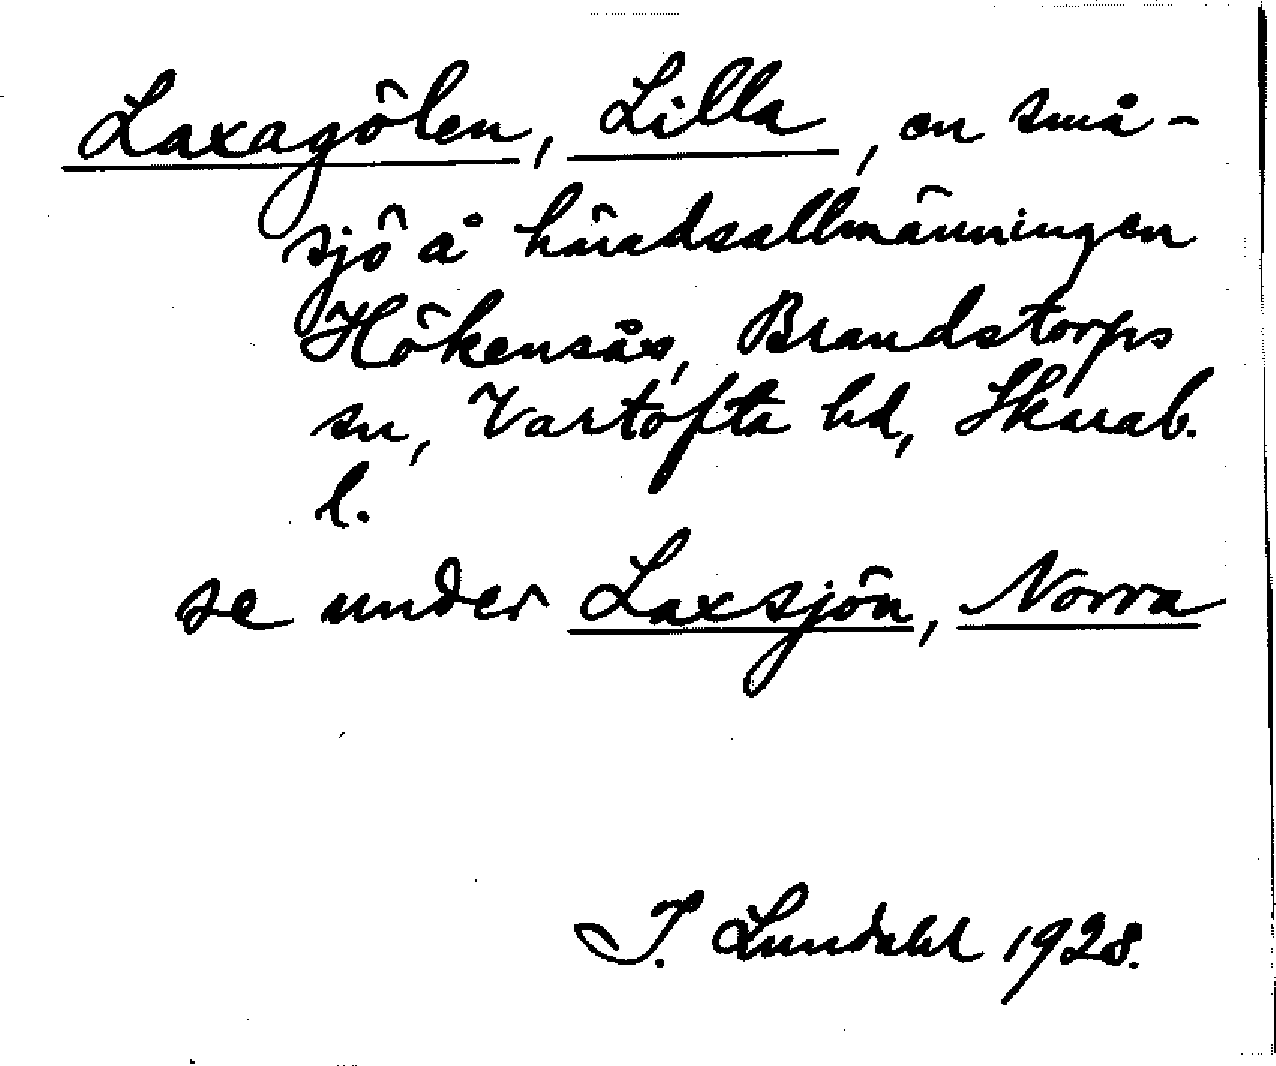 Laxagölen, Lilla, en små-
sjö å häradsallmänningen
Hökensås, Brandstorps
sn, Vartofta hd, Skarab.
l.
se under Laxsjön, Norra
I. Lundahl 1928.